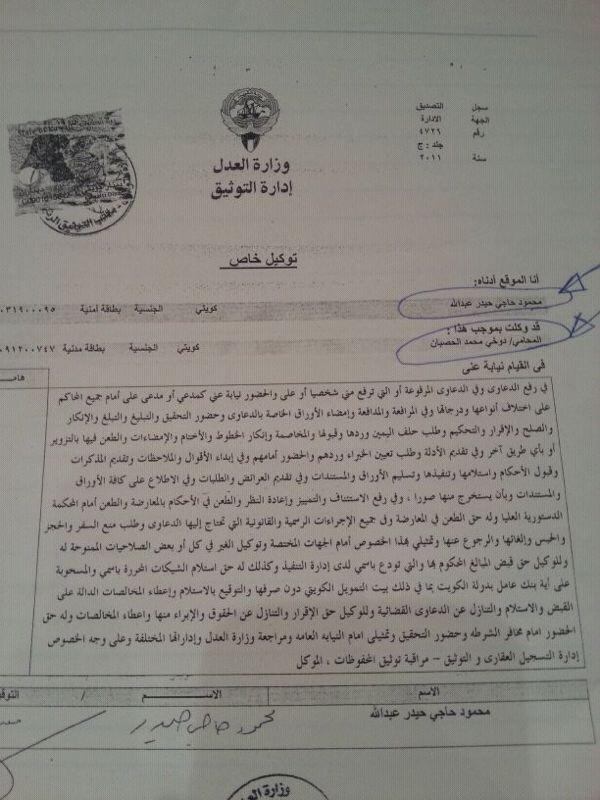 سجل التصديق
الجهة الادارة
رقم ٤٧٢٦
جلد : ج
سنة ٢٠١١
وزارة العدل
إدارة التوثيق
توكيل خاص
أنا الموقع أدناه:
محمود حاجي حيدر عبدالله كويتي الجنسية بطاقة أمنية ٠٣١٩٠٠٠٩٥
قد وكلت بموجب هذا :
المحامي/ دوخي محمد الحصبان كويتي الجنسية بطاقة مدنية ٠٩١٢٠٠٧٤٧
فى القيام نيابة عنى
في رفع الدعاوى وفي الدعاوى المرفوعة أو التي ترفع مني شخصيا أو على والحضور نيابة عني كمدعي أو مدعى على أمام جميع المحاكم
على اختلاف أنواعها ودرجاتها وفي المرافعة والمدافعة وإمضاء الأوراق الخاصة بالدعاوى وحضور التحقيق والتبليغ والتبلغ والإنكار
والصلح والإقرار والتحكيم وطلب حلف اليمين وردها وقبولها والمخاصمة وإنكار الخطوط والأختام والإمضاءات والطعن فيها بالتزوير
أو بأي طريق آخر وفي تقديم الأدلة وطلب تعيين الخبراء وردهم والحضور أمامهم وفي إبداء الأقوال والملاحظات وتقديم المذكرات
وقبول الأحكام واستلامها وتنفيذها وتسليم الأوراق والمستندات وفي تقديم العرائض والطلبات وفي الاطلاع على كافة الأوراق
والمستندات وبأن يستخرج منها صورا ، وفي رفع الاستئناف والتمييز وإعادة النظر والطعن في الأحكام بالمعارضة والطعن أمام المحكمة
الدستورية العليا وله حق الطعن في المعارضة وفى جميع الإجراءات الرسمية والقانونية التي تحتاج إليها الدعاوى وطلب منع السفر والحجز
والحبس وإلغائها والرجوع عنها وتمثيلي بهذا الخصوص أمام الجهات المختصة وتوكيل الغير في كل أو بعض الصلاحيات الممنوحة له
وللوكيل حق قبض المبالغ المحكوم بها والتي تودع باسمي لدى إدارة التنفيذ وكذلك له حق استلام الشيكات المحررة باسمي والمسحوبة
على أية بنك عامل بدولة الكويت بما في ذلك بيت التمويل الكويتي دون صرفها والتوقيع بالاستلام وإعطاء المخالصات الدالة على
القبض والاستلام والتنازل عن الدعاوى القضائية وللوكيل حق الإقرار والتنازل عن الحقوق والإبراء منها واعطاء المخالصات وله حق
الحضور امام مخافر الشرطه وحضور التحقيق وتمثيلى امام النيابه العامه ومراجعة وزارة العدل وإداراتها المختلفة وعلى وجه الخصوص
إدارة التسجيل العقارى و التوثيق – مراقبة توثيق المحفوظات ، الموكل
الاسم الاســـم / التوقيـ
محمود حاجي حيدر عبدالله محمود حاجي حيدر
وزارة العد